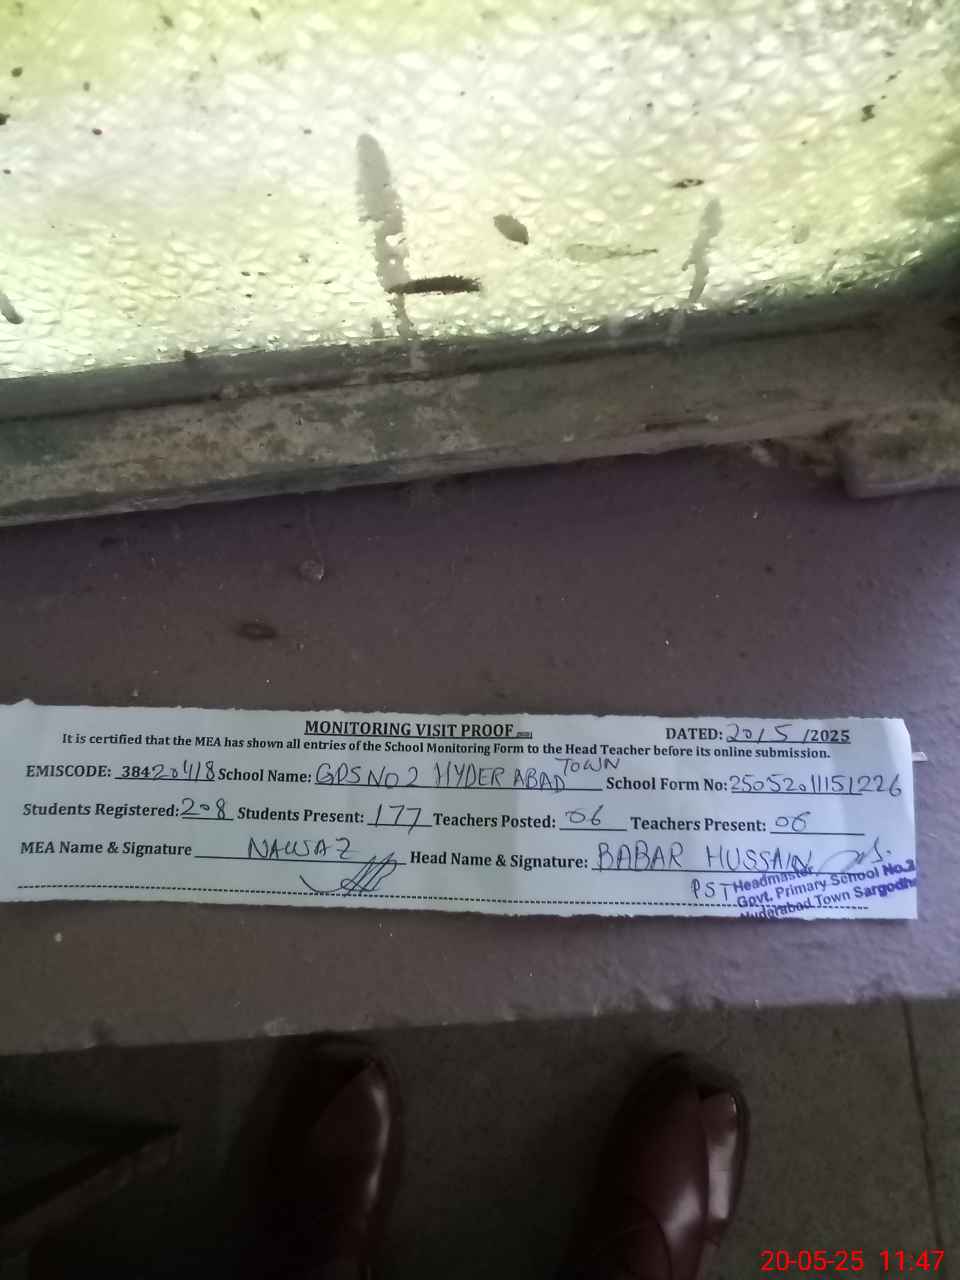 MONITORING VISIT PROOF
DATED: 20/5/2025
It is certified that the MEA has shown all entries of the School Monitoring Form to the Head Teacher before its online submission.
EMISCODE: 38420418 School Name: GPS NO 2 HYDERABAD TOWN School Form No: 25052011151226
Students Registered: 208 Students Present: 177 Teachers Posted: 06 Teachers Present: 06
MEA Name & Signature NAWAZ Head Name & Signature: BABAR HUSSAIN
PST Headmaster
Govt. Primary School No.2
Hyderabad Town Sargodha
20-05-25 11:47